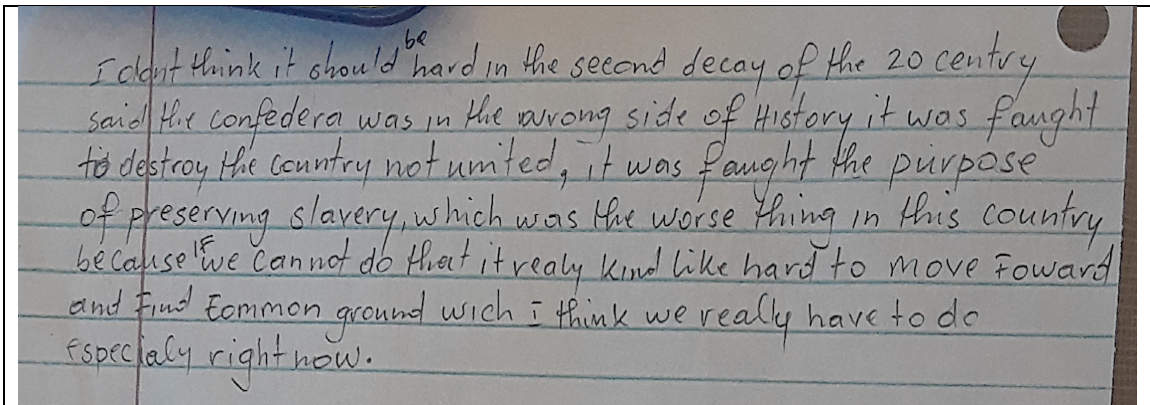 I didnt think it should be hard in the second decay of the 20 centry
said the confedera was in the wrong side of History it was faught
to destroy the country not umited, it was faught the purpose
of preserving slavery, which was the worse thing in this country
because if we cannot do that it realy kind like hard to move Foward
and Find Eommon ground wich I think we really have to do
Especialy right now.